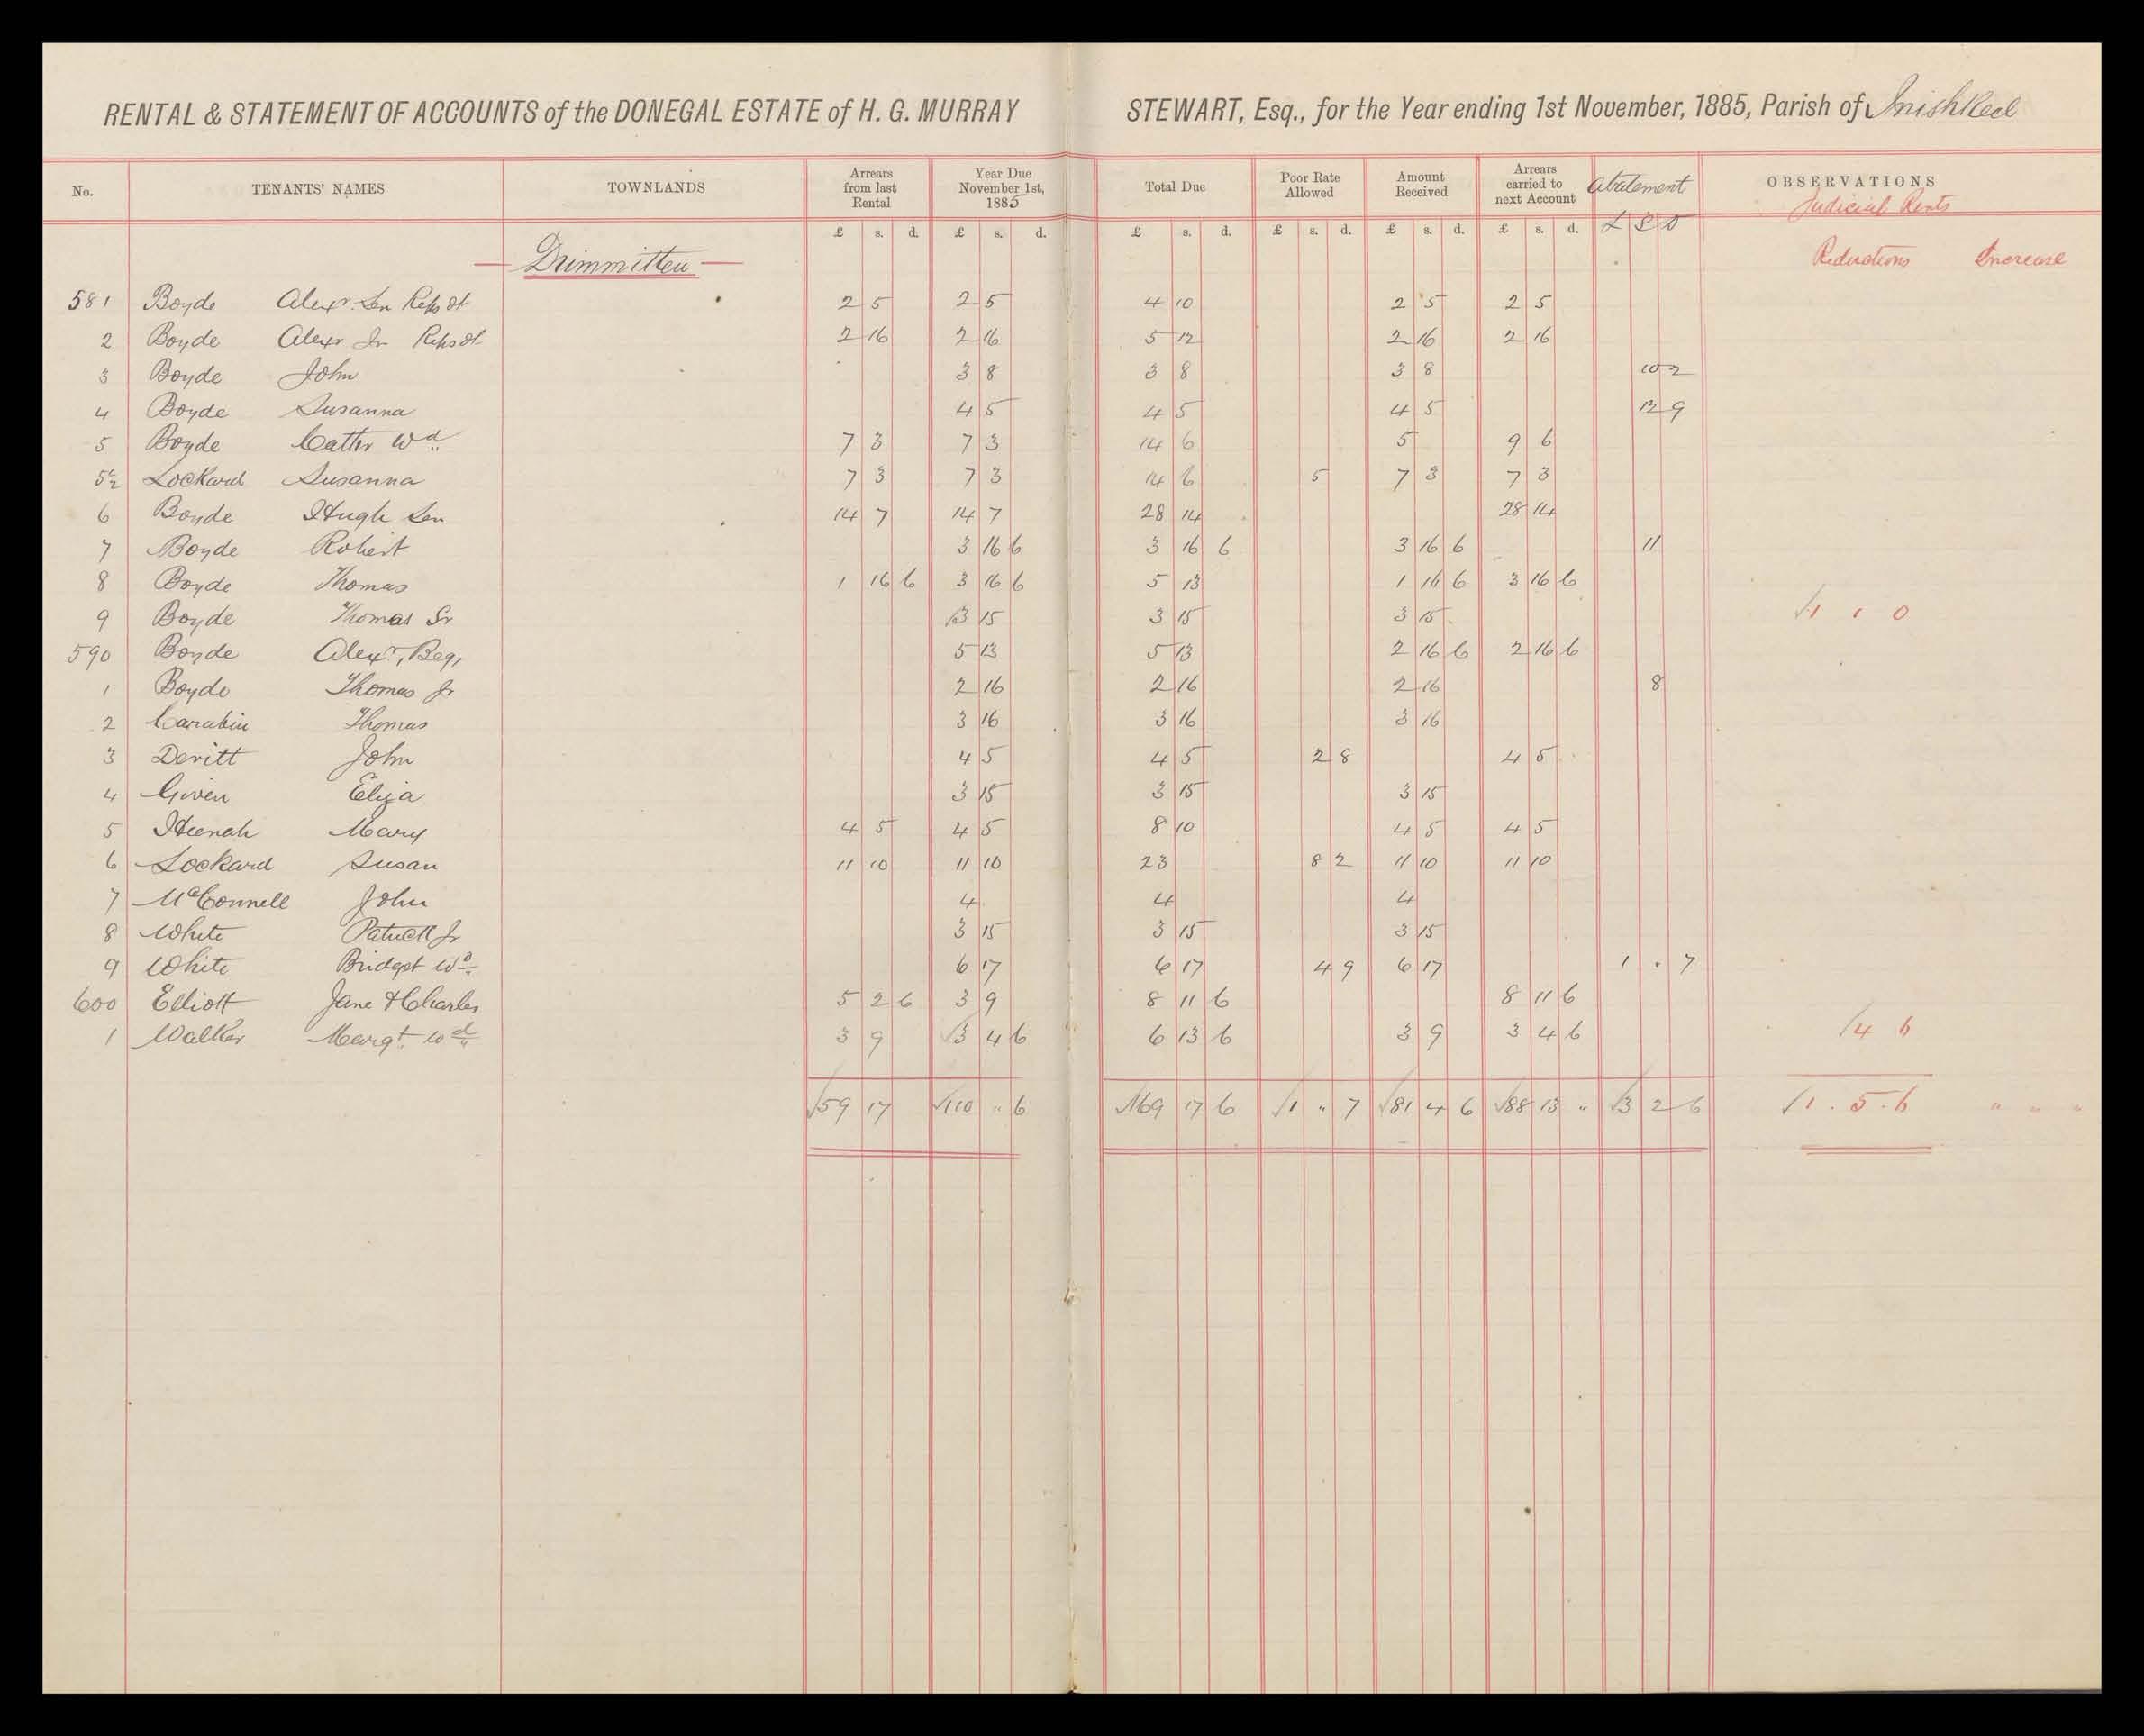 RENTAL & STATEMENT OF ACCOUNTS of the DONEGAL ESTATE of H. G. MURRAY STEWART, Esq., for the Year ending 1st November, 1885, Parish of Inishkeel
No. TENANTS' NAMES TOWNLANDS Arrears from last Rental Year Due November 1st, 1885 Total Due Poor Rate Allowed Amount Received Arrears carried to next Account Abatement OBSERVATIONS
Judicial Rents
£ s. d. £ s. d. £ s. d. £ s. d. £ s. d. £ s. d. £ S D
Drimmitten Reductions Increase
581 Boyde Alexr. Sen 2 5 2 5 4 10 2 5 2 5
2 Boyde Alexr Jr 2 16 2 16 5 12 2 16 2 16
3 Boyde John 3 8 3 8 3 8 10 2
4 Boyde Susanna 4 5 4 5 4 5 12 9
5 Boyde Cathr Wd 7 3 7 3 14 6 5 9 6
5½ Lockard Susanna 7 3 7 3 14 6 5 7 3 7 3
6 Boyde Hugh Sen 14 7 14 7 28 14 28 14
7 Boyde Robert 3 16 6 3 16 6 3 16 6 11
8 Boyde Thomas 1 16 6 3 16 6 5 13 1 16 6 3 16 6
9 Boyde Thomas Sr 3 15 3 15 3 15 √1 1 0
590 Boyde Alexr, Beg, 5 13 5 13 2 16 6 2 16 6
1 Boyde Thomas Jr 2 16 2 16 2 16 8
2 Carabin Thomas 3 16 3 16 3 16
3 Devitt John 4 5 4 5 2 8 4 5
4 Given Eliza 3 15 3 15 3 15
5 Heenah Mary 4 5 4 5 8 10 4 5 4 5
6 Lockard Susan 11 10 11 10 23 8 2 11 10 11 10
7 McConnell John 4 4 4
8 White Patrick Jr 3 15 3 15 3 15
9 White Bridget Wd 6 17 6 17 4 9 6 17 1 . 7
600 Elliott Jane & Charles 5 2 6 3 9 8 11 6 8 11 6
1 Walker Margt. Wd 3 9 √3 4 6 6 13 6 3 9 3 4 6 /4 6
√59 17 √110 " 6 √169 17 6 √1 " 7 √81 4 6 √88 13 " √3 2 6 √1 . 5 . 6 " " "